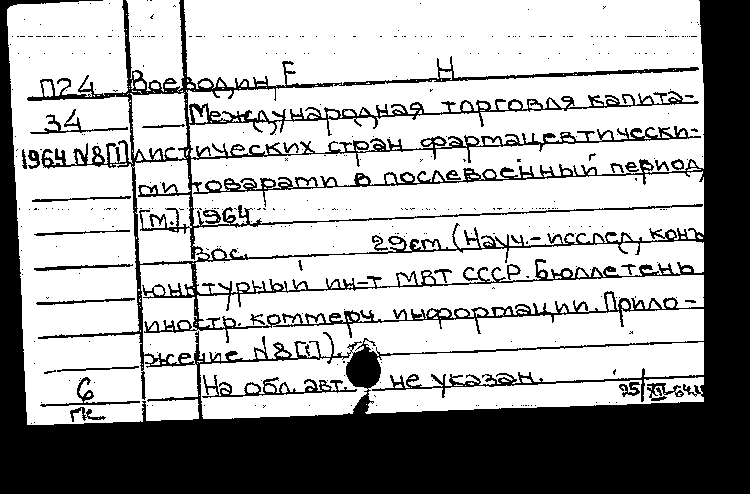 П24 Воеводин, Г Н
34 Международная торговля капита-
1964 N8[1] листических стран фармацевтически-
ми товарами в послевоенный период,
[М.], 1964.
30с. 29см. (Науч.-исслед, конъ
юнктурный ин-т МВТ СССР. Бюллетень
иностр. коммерч. информации. Прило-
жение N8[1]).
6 На обл. авт. не указан.
ГК 25/XII-64